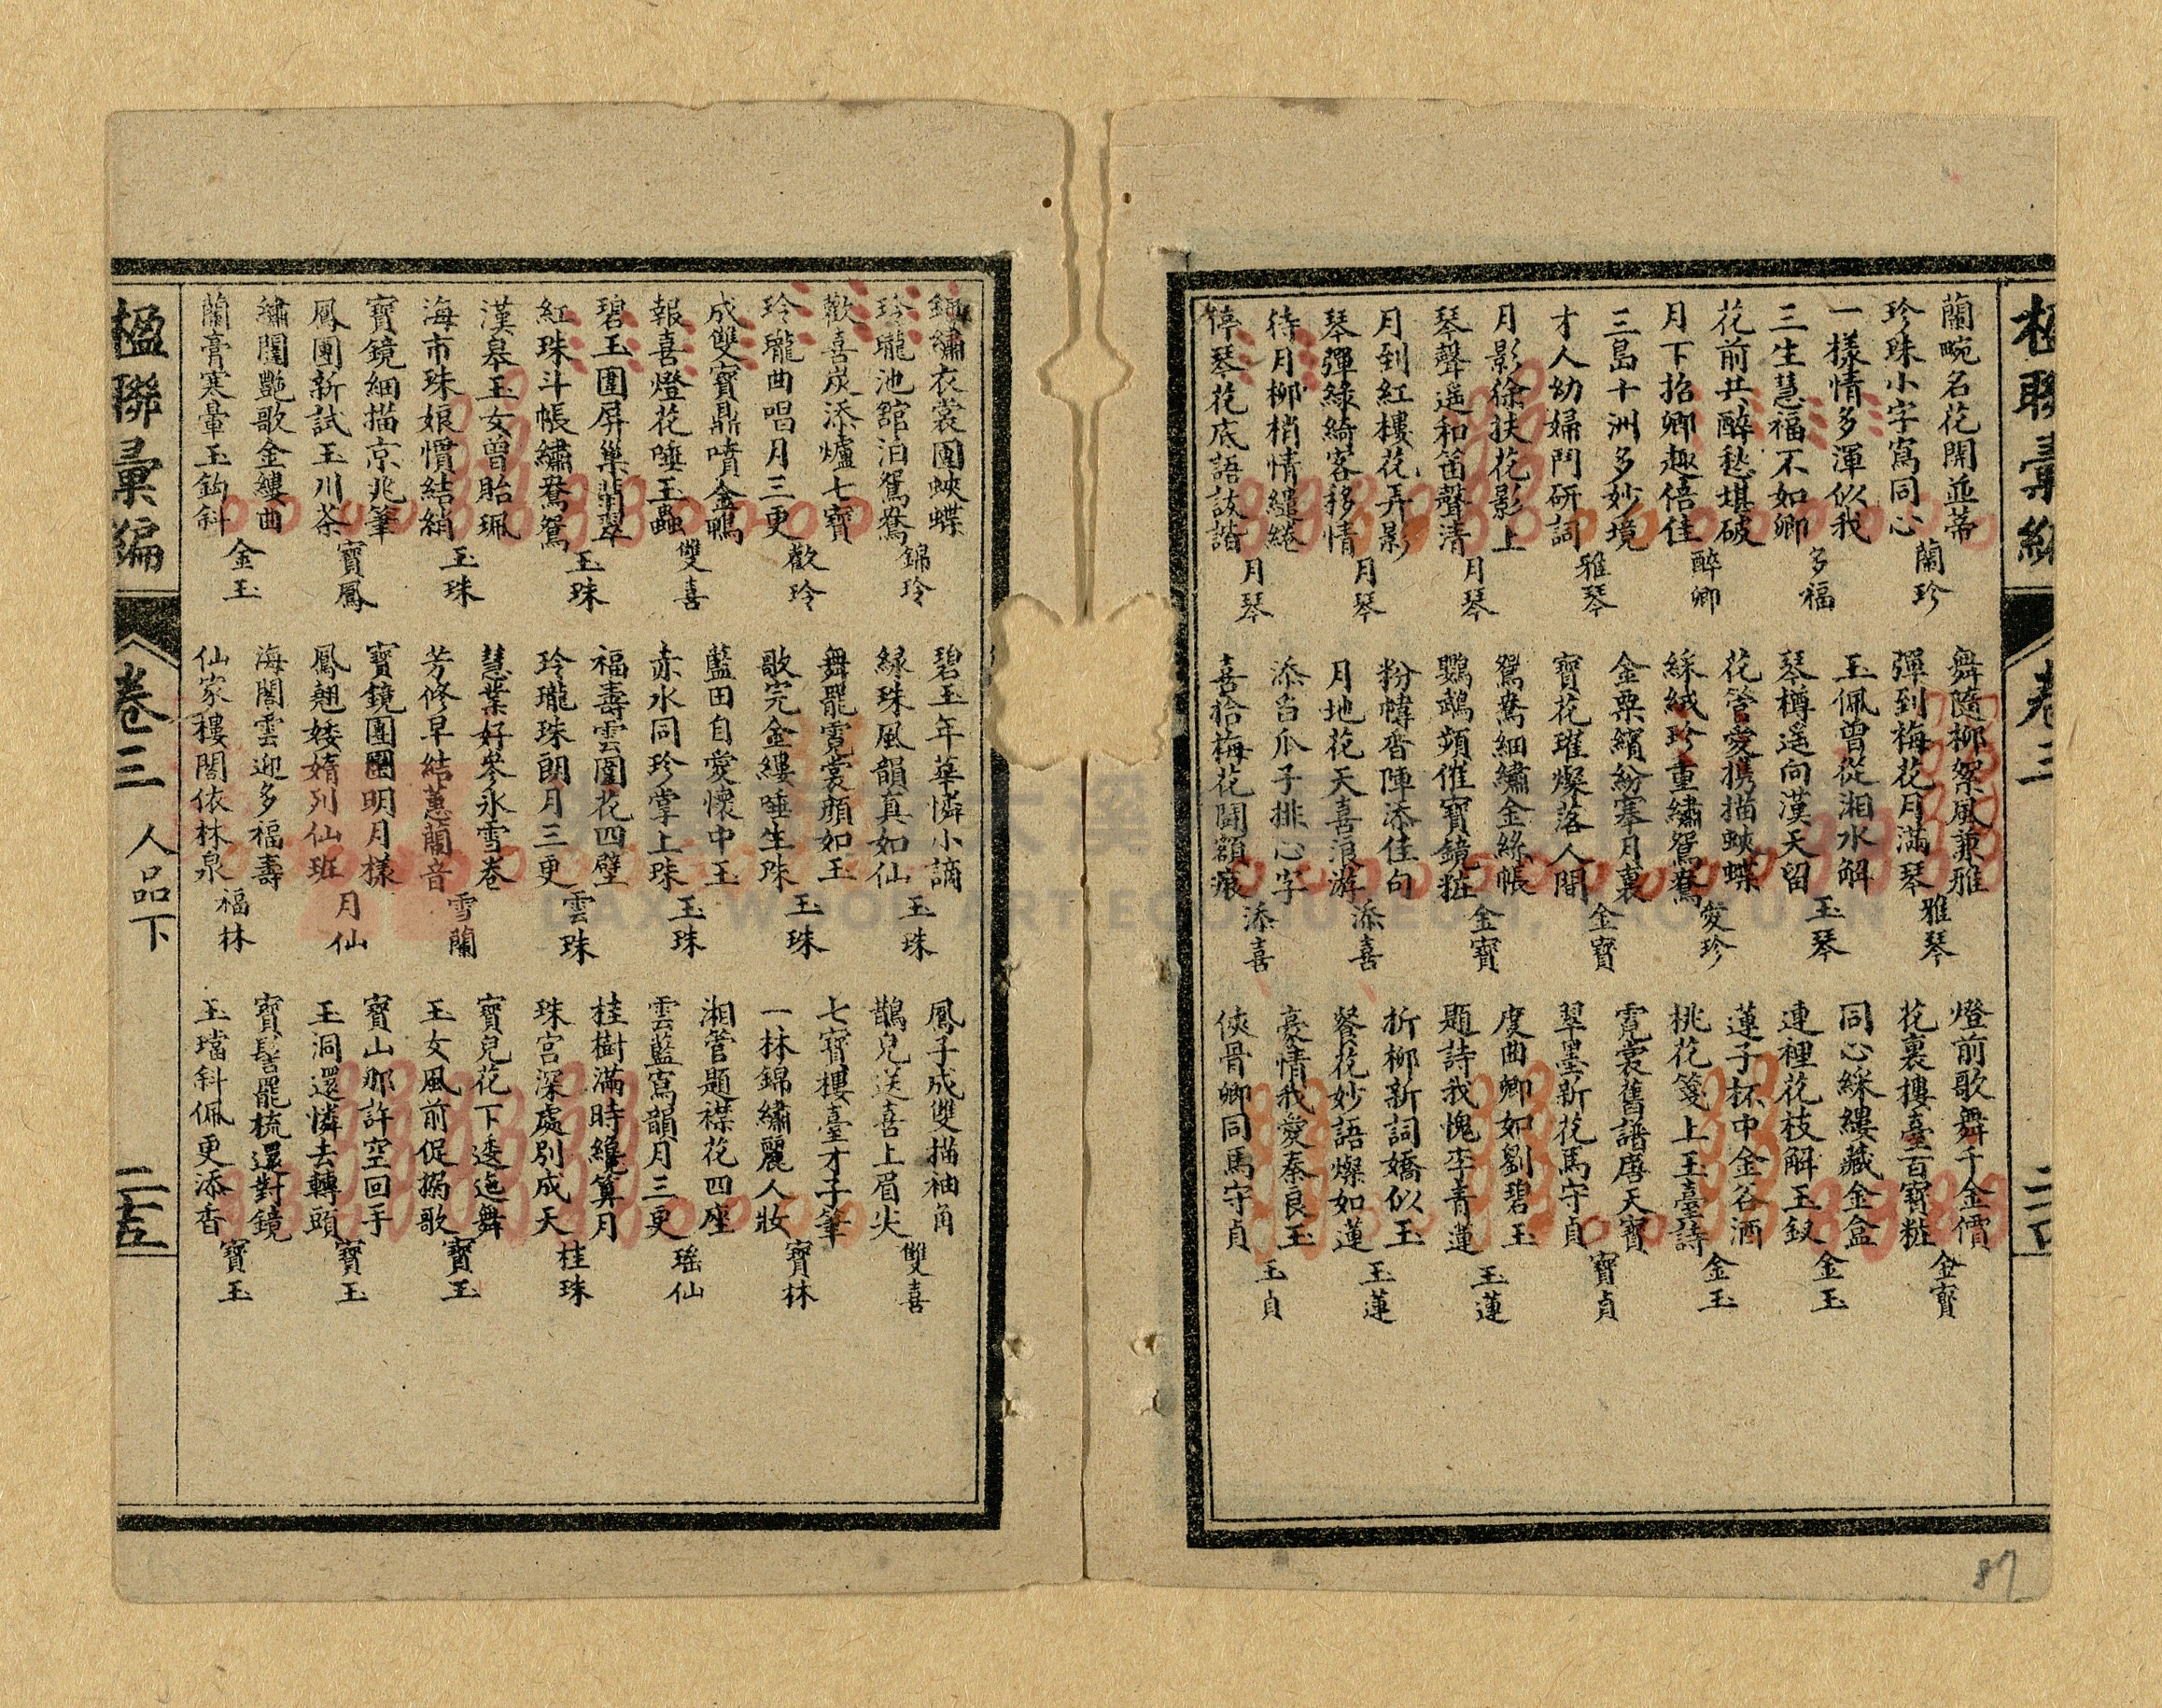 楹聯彙編
卷三
蘭畹名花開並蒂
珍珠小字寫同心
蘭珍
一樣情多渾似我
三生慧福不如卿
多福
花前共醉愁堪破
月下招卿趣倍佳
醉卿
三島十洲多妙境
才人幼婦鬥研詞
雅琴
月影徐扶花影上
琴聲遥和笛聲清
月琴
月到紅樓花弄影
琴彈綠綺客移情
月琴
待月柳梢情繾綣
停琴花底語詼諧
月琴
舞隨柳絮風兼雅
彈到梅花月滿琴
雅琴
玉佩曾從湘水解
琴樽遥向漢天留
玉琴
花管愛携描蛺蝶
綵絨珍重繡鴛鴦
愛珍
金粟繽紛塞月裏
寶花璀燦落人間
金寶
鴛鴦細繡金絲帳
鸚鵡頻催寶鏡粧
金寶
粉幃香陣添佳句
月地花天喜浪游
添喜
添召瓜子排心字
喜拾梅花鬪額痕
添喜
燈前歌舞千金價
花裏樓臺百寶粧
金寶
同心綵縷藏金盒
連裡花枝解玉釵
金玉
蓮子杯中金谷酒
桃花箋上玉臺詩
金玉
霓裳舊譜唐天寶
翠墨新花馬守貞
寶貞
度曲卿如劉碧玉
題詩我愧李青蓮
玉蓮
折柳新詞嬌似玉
餐花妙語燦如蓮
玉蓮
豪情我愛秦良玉
俠骨卿同馬守貞
玉貞
錦繡衣裳圍蛺蝶
玲瓏池舘泊鴛鴦
錦玲
歡喜炭添爐七寶
玲瓏曲唱月三更
歡玲
成雙寶鼎噴金鴨
報喜燈花唾玉蟲
雙喜
碧玉圍屏巢翡翠
紅珠斗帳繡鴛鴦
玉珠
漢皋玉女曾貽珮
海市珠娘慣結綃
玉珠
寶鏡細描京兆筆
鳳團新試玉川茶
寶鳳
繡閣艷歌金縷曲
蘭膏寒暈玉鈎斜
金玉
碧玉年華憐小謫
綠珠風韻真如仙
玉珠
舞罷霓裳顏如玉
歌完金縷唾生珠
玉珠
藍田自愛懷中玉
赤水同珍掌上珠
玉珠
福壽雲圍花四壁
玲瓏珠朗月三更
雲珠
慧業好參氷雪卷
芳修早結蕙蘭音
雪蘭
寶鏡團圞明月樣
鳳翹婑媠列仙班
月仙
海闊雲迎多福壽
仙家樓閣依林泉
福林
鳳子成雙描袖角
鵲兒送喜上眉尖
雙喜
七寶樓臺才子筆
一林錦繡麗人妝
寶林
湘管題襟花四座
雲藍寫韻月三更
瑤仙
桂樹滿時纔算月
珠宮深處別成天
桂珠
寶兒花下逶迤舞
玉女風前促搦歌
寶玉
寶山那許空回手
玉洞還憐去轉頭
寶玉
寶髻罷梳還對鏡
玉璫斜佩更添香
寶玉
楹聯彙編
卷三
人品下
二十五
87